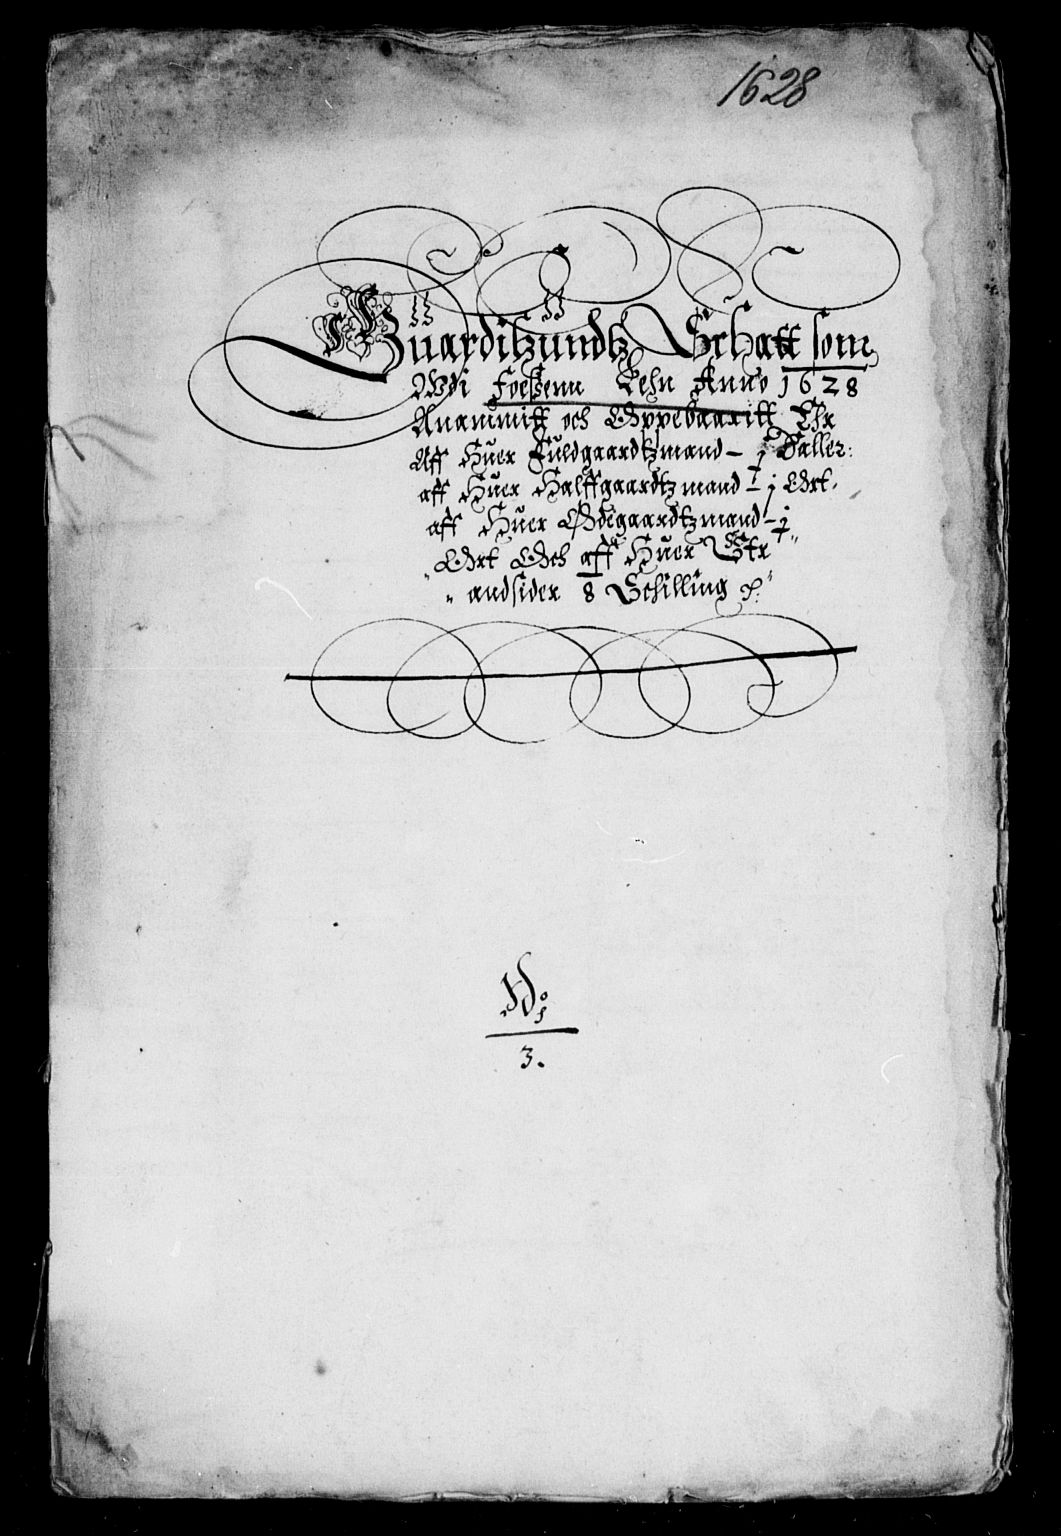 1628
Guarditzundtz Schatt som
Wdi Foeßenn Lehn Anno 1628
Anammitt och Oppebaaritt Ehr
Aff Huer Fuldgaardtzmand – 1 Daller:
aff Huer Halffgaardtzmand – ½ Ort
aff Huer Ødegaardtzmand – ½
Ort Och aff Huer Str
andsider 8 Schilling
No
3.